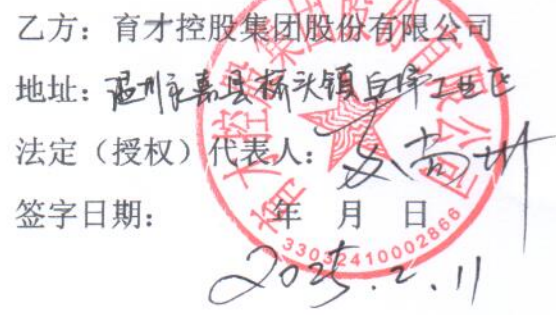 乙方：育才控股集团股份有限公司
地址：温州永嘉县桥头镇白垟工业区
法定（授权）代表人：
签字日期： 年 月 日
2025.2.11
育才控股集团股份有限公司
33032410002866